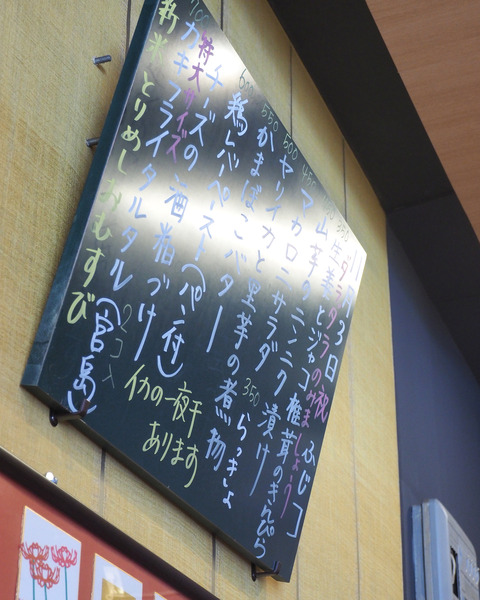 11月3日祝 ふじコ
ダラダラのみましょう
生姜とジャコ椎茸のきんぴら
山芋のニンニク漬け
マカロニサラダ
ヤリイカと里芋の煮物
かまぼこバター
350 らっきょ
鶏レバペースト(パン付)
チーズの酒粕づけ
特大サイズ
カキフライタルタル(宮島)
2コ入
新米とりめしおむすび
イカの一夜干
あります
450
500
550
600